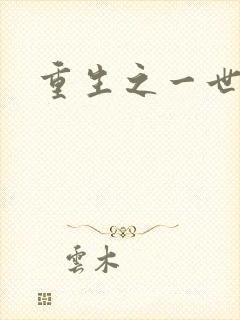 重生之一世
雲木